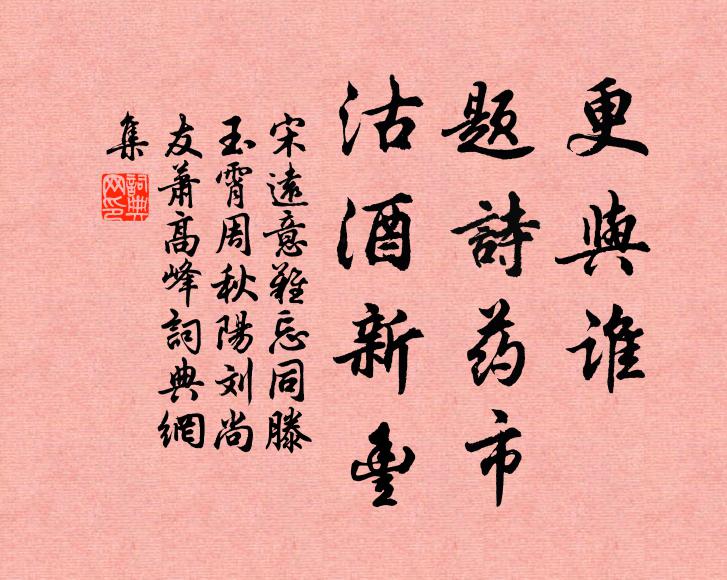 更與谁
题詩药市
沽酒新豊
宋遠意難忘同滕
玉霄周秋陽刘尚
友蕭高峰詞典網
集
詞典
网印